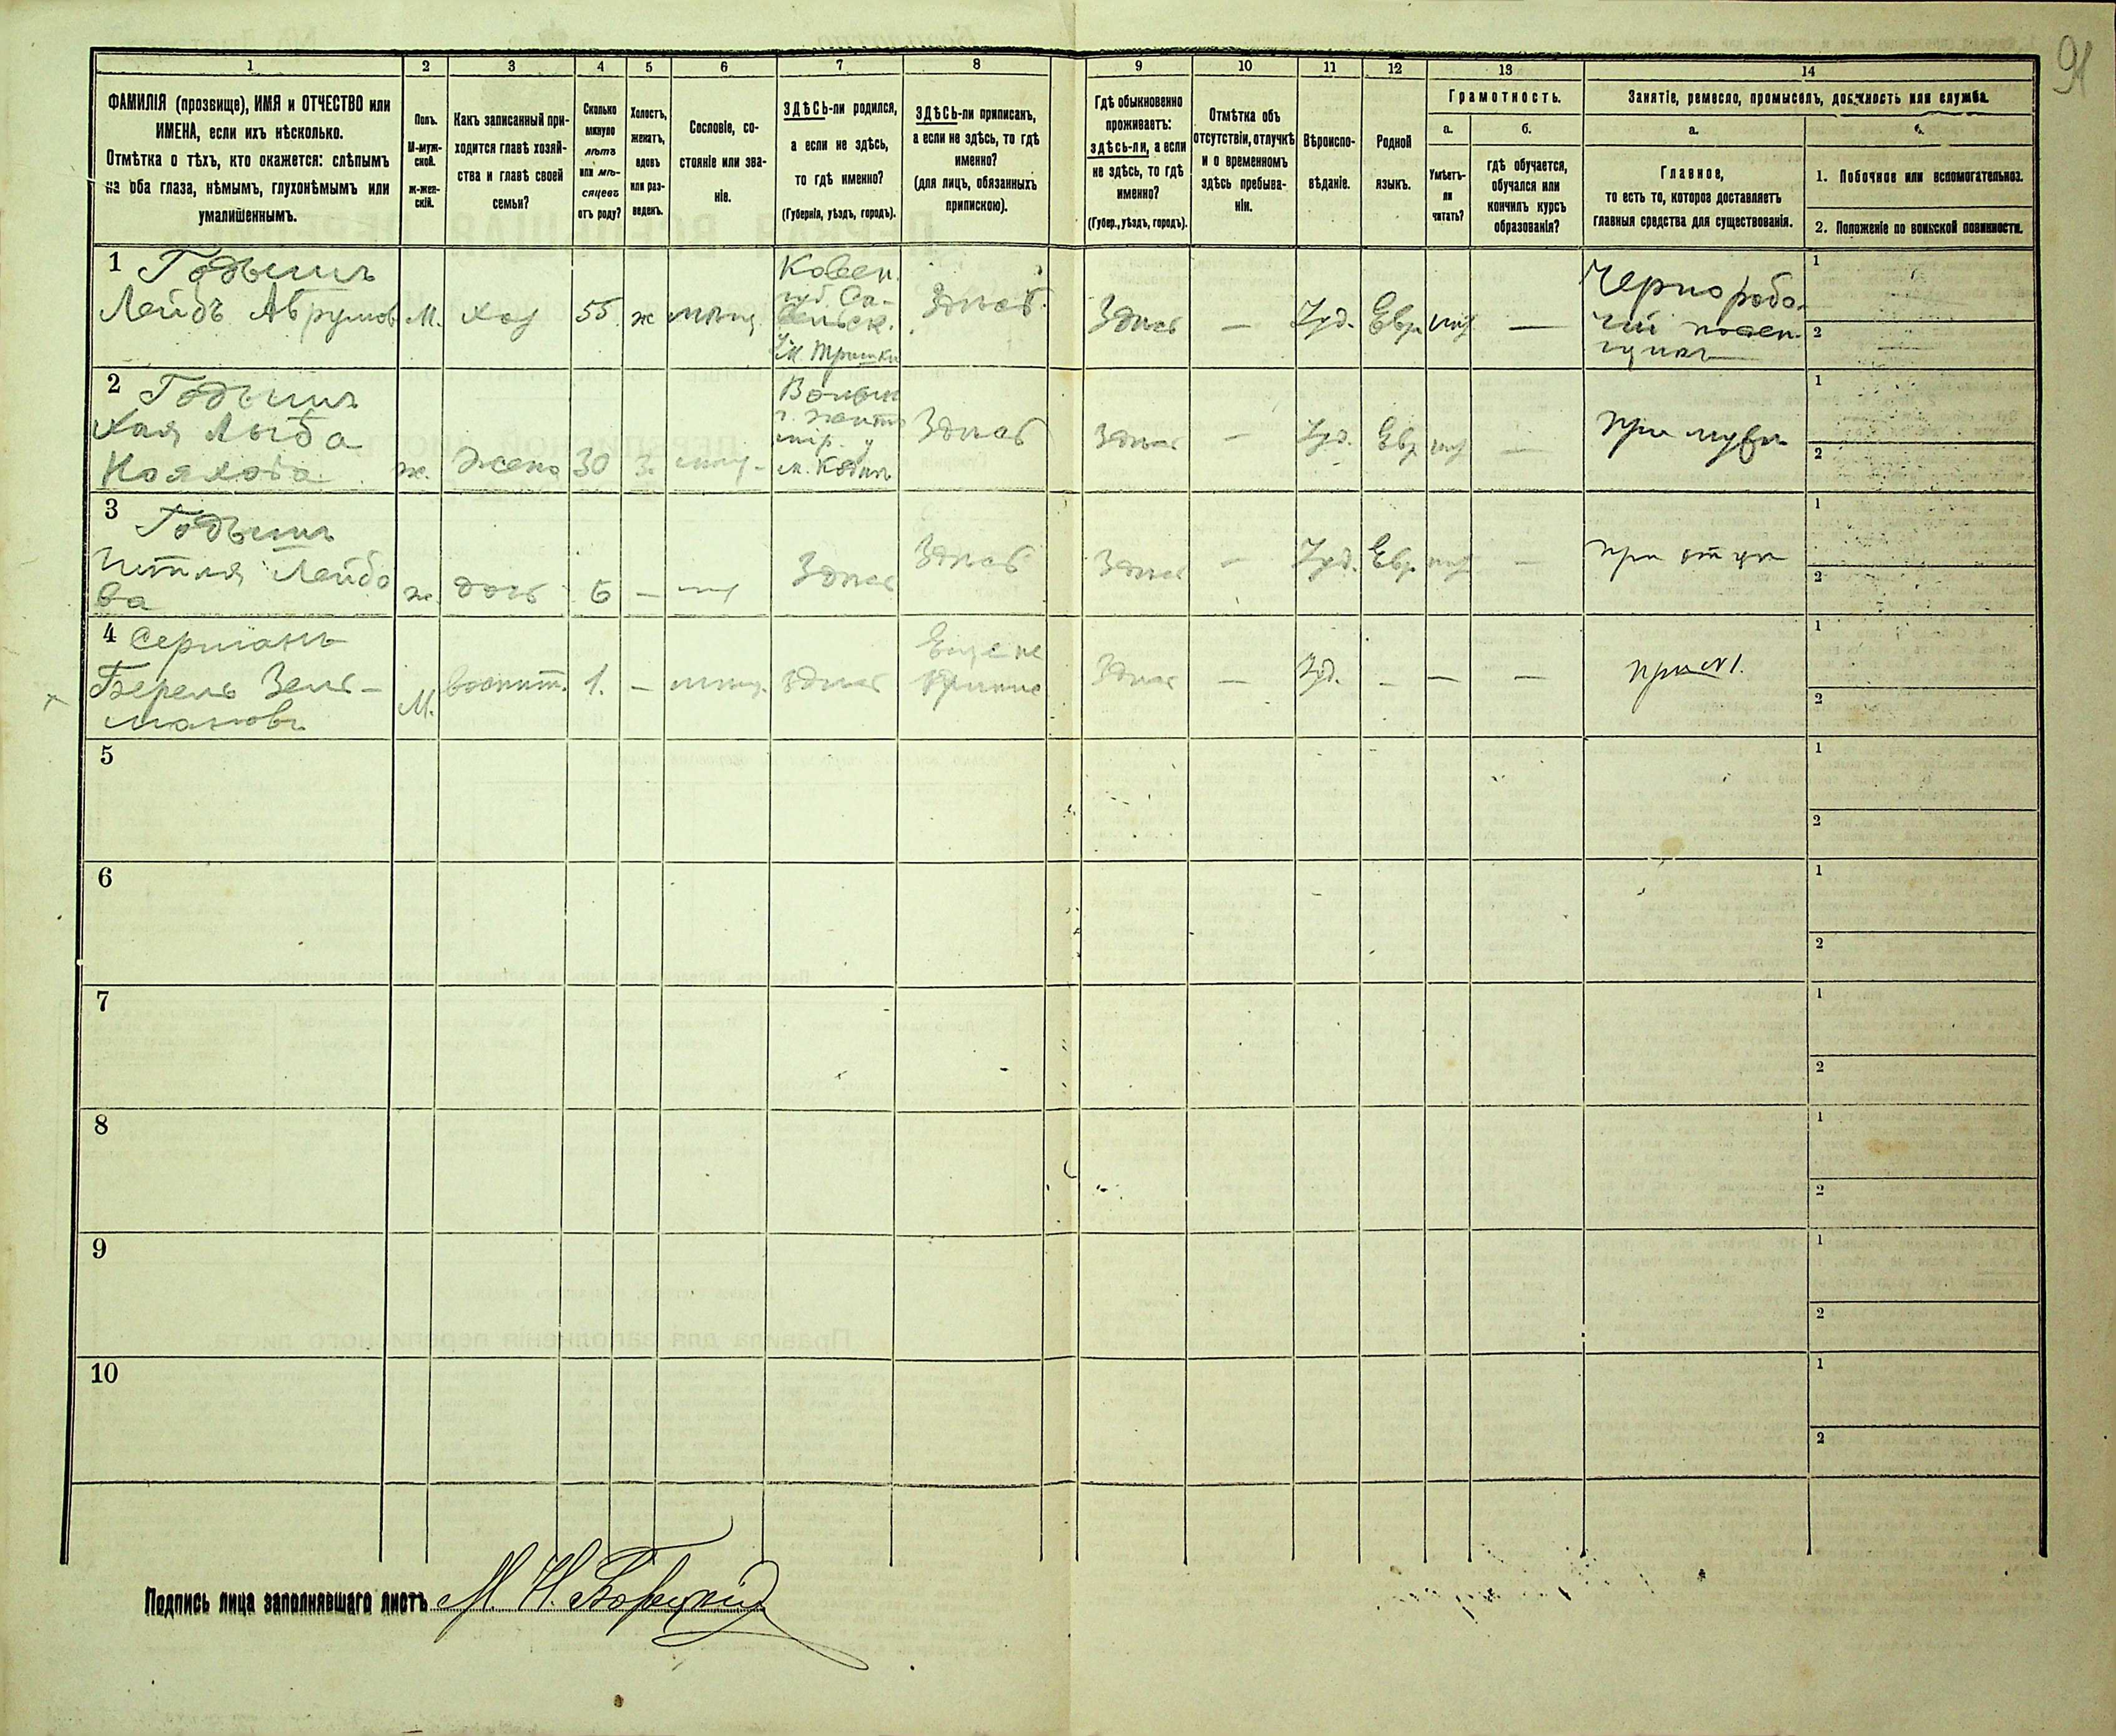 91
1 2 3 4 5 6 7 8 9 10 11 12 13 14
ФАМИЛІЯ (прозвище), ИМЯ и ОТЧЕСТВО или
ИМЕНА, если ихъ нѣсколько.
Отмѣтка о тѣхъ, кто окажется: слѣпымъ
на оба глаза, нѣмымъ, глухонѣмымъ или
умалишеннымъ.
Полъ.
М-муж-
ской.
ж-жен-
скій.
Какъ записанный при-
ходится главѣ хозяй-
ства и главѣ своей
семьи?
Сколько
минуло
лѣтъ
или мѣ-
сяцевъ
отъ роду?
Холостъ,
женатъ,
вдовъ
или раз-
веденъ.
Сословіе, со-
стояніе или зва-
ніе.
ЗДѢСЬ-ли родился,
а если не здѣсь,
то гдѣ именно?
(Губернія, уѣздъ, городъ).
ЗДѢСЬ-ли приписан,
а если не здѣсь, то гдѣ
именно?
(для лицъ, обязанныхъ
припискою).
Гдѣ обыкновенно
проживаетъ:
здѣсь-ли, а если
не здѣсь, то гдѣ
именно?
(Губер., уѣздъ, городъ).
Отмѣтка объ
отсутствіи, отлучкѣ
и о временномъ
здѣсь пребыва-
ніи.
Вѣроиспо-
вѣданіе.
Родной
языкъ.
Грамотность.
а. б.
Умѣетъ-
ли
читать?
гдѣ обучается,
обучался или
кончилъ курсъ
образованія?
Занятіе, ремесло, промыселъ, должность или служба.
а.
Главное,
то есть то, которое доставляетъ
главныя средства для существованія.
1. Побочное или вспомогательное.
2. Положеніе по воинской повинности.
1 Годышъ
Лейбъ Аврумовъ
М. хоз 55 ж мѣщ
Ковен.
губ.
м. Тришки
Здѣсь
Здѣсь — Іуд. Евр —
Чернорабо-
чій
1
2
2 Годышъ
Хая Лыба
ж. Жена 30 З.
Волын
м. Кодня
Здѣсь
Здѣсь — Іуд. Евр —
При мужѣ
1
2
3 Годышъ
Лейбо
ва
ж дочь 6 —
Здѣсь
Здѣсь
Здѣсь — Іуд. Евр —
при отцѣ
1
2
4
Берель Зель-
мановъ
М. воспит. 1. — мѣщ. здѣсь
Еще не
Здѣсь — Іуд. — — —
при №1.
1
2
5
1
2
6
1
2
7
1
2
8
1
2
9
1
2
10
1
2
Подпись лица заполнявшаго листъ